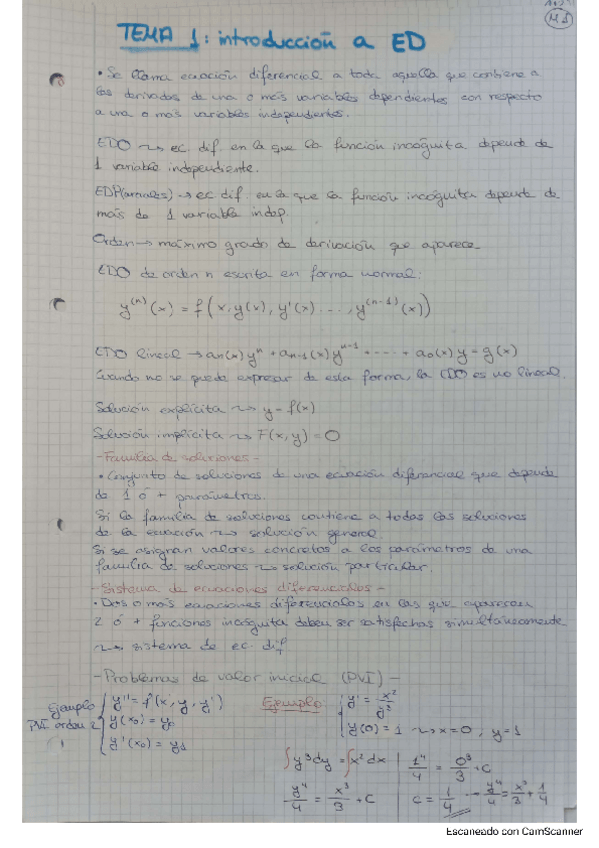 M1
TEMA 1: introducción a ED
• Se llama ecuación diferencial a toda aquella que contiene a
las derivadas de una o más variables dependientes con respecto
a una o más variables independientes.
EDO ⇝ ec. dif. en la que la función incógnita depende de
1 variable independiente.
EDP(arciales) → ec dif. en la que la función incógnita depende de
más de 1 variable indep.
Orden → máximo grado de derivación que aparece
EDO de orden n escrita en forma normal:
y⁽ⁿ⁾(x) = f(x, y(x), y'(x) ..., y⁽ⁿ⁻¹⁾(x))
EDO lineal → an(x)yⁿ + an-1(x)yⁿ⁻¹ + ---- + a0(x)y = g(x)
Cuando no se pueda expresar de esta forma, la EDO es no lineal.
Solución explícita ⇝ y = f(x)
Solución implícita ⇝ F(x,y) = 0
- Familia de soluciones -
• Conjunto de soluciones de una ecuación diferencial que depende
de 1 ó + parámetros.
Si la familia de soluciones contiene a todas las soluciones
de la ecuación ⇝ solución general.
Si se asignan valores concretos a los parámetros de una
familia de soluciones ⇝ solución particular.
- Sistema de ecuaciones diferenciales -
• Dos o más ecuaciones diferenciales en las que aparecen
2 ó + funciones incógnita deben ser satisfechas simultáneamente
⇝ sistema de ec. dif
- Problemas de valor inicial (PVI) -
Ejemplo PVI orden 2
y'' = f(x, y, y')
y(x0) = y0
y'(x0) = y1
Ejemplo:
y' = x²/y³
y(0) = 1 ⇝ x=0, y=1
∫y³dy = ∫x²dx | 1⁴/4 = 0³/3 + C
y⁴/4 = x³/3 + C | C = 1/4 → y⁴/4 = x³/3 + 1/4
Escaneado con CamScanner